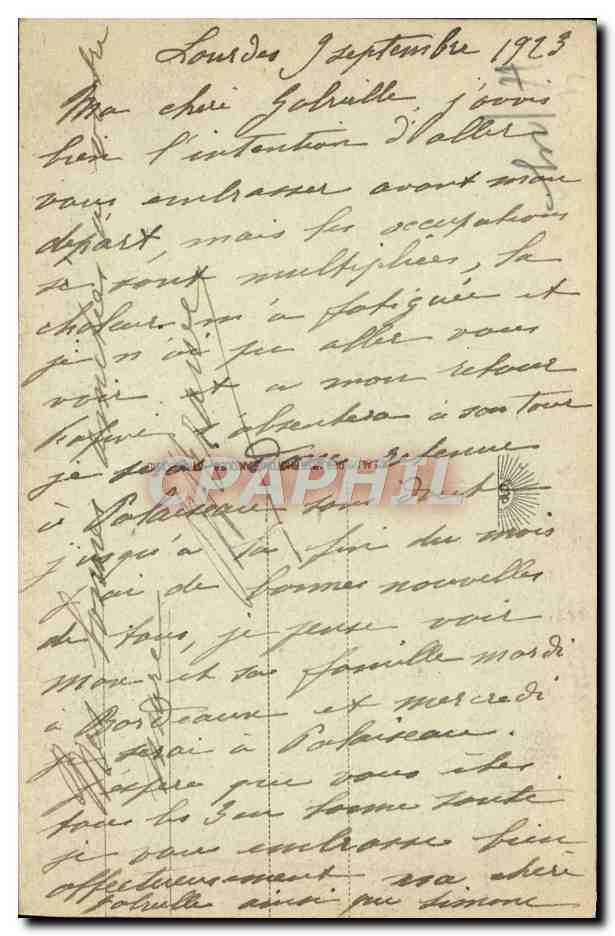 Lourdes 9 septembre 1923
Ma chéri Gabrielle, j'avais
bien l'intention d'aller
vous embrasser avant mon
départ, mais les occupations
se sont multipliées, la
chaleur m'a fatiguée et
je n'ai pu aller vous
voir et a mon retour
s'absentera à son tour
je serai retenue
à Palaiseau sans doute
jusqu'à la fin du mois
J'ai de bonnes nouvelles
de tous, je pense voir
Max et sa famille mardi
à Bordeaux et mercredi
je serai à Palaiseau.
J'espère que vous êtes
tous les 3 en bonne santé
je vous embrasse bien
affectueusement ma chéri
Gabrielle ainsi que Simone
CPAPHIL